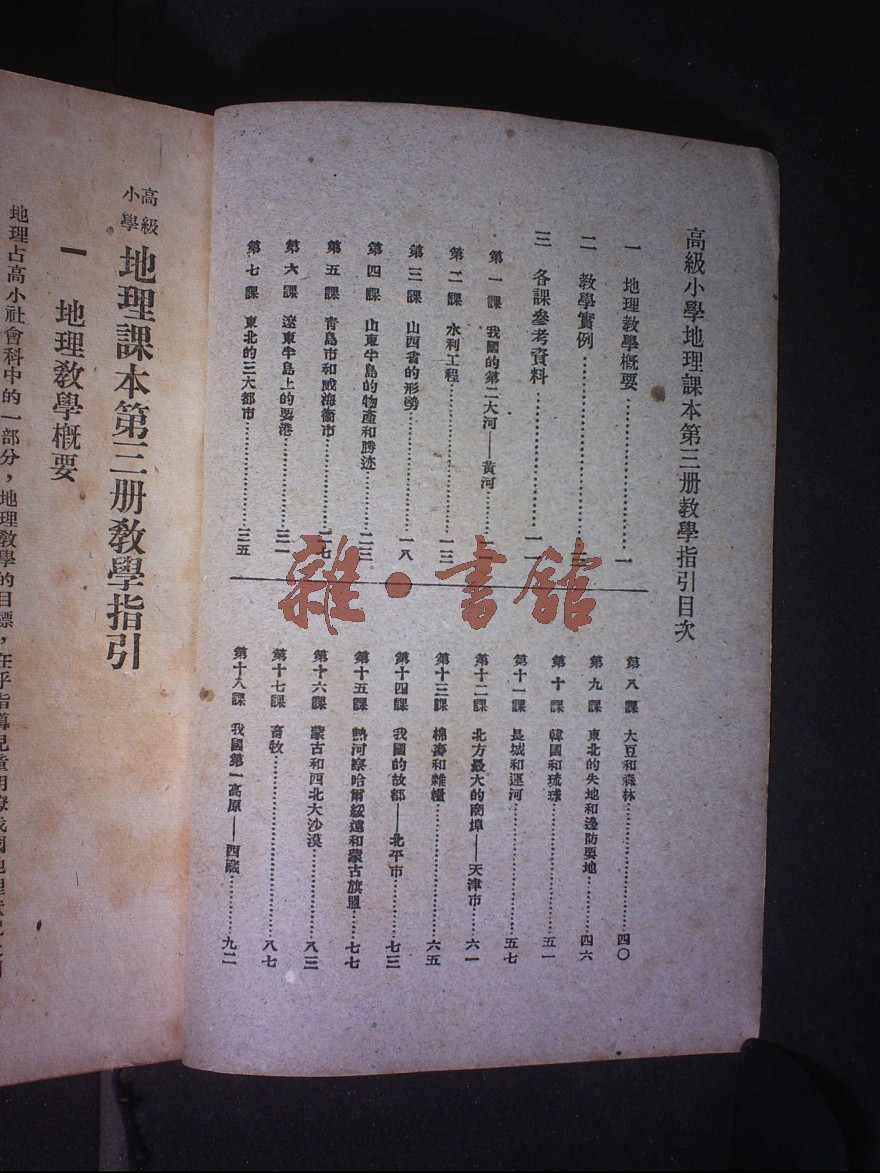 高級小學地理課本第三册教學指引目次
一 地理教學概要…………………一
二 教學實例…………………
三 各課參考資料…………………一一
第一課 我國的第二大河——黃河………
第二課 水利工程…………………一三
第三課 山西省的形勢…………………一八
第四課 山東半島的物產和勝迹…………二三
第五課 靑島市和威海衞市…………二七
第六課 遼東半島上的要港…………三一
第七課 東北的三大都市…………三五
第八課 大豆和森林…………四〇
第九課 東北的失地和邊防要地…………四六
第十課 韓國和琉球…………五一
第十一課 長城和運河…………五七
第十二課 北方最大的商埠——天津市……六一
第十三課 棉麥和雜糧…………六五
第十四課 我國的故都——北平市………七三
第十五課 熱河察哈爾綏遠和蒙古旗盟……七七
第十六課 蒙古和西北大沙漠…………八三
第十七課 畜牧…………八七
第十八課 我國第一高原——西藏………九二
高級小學 地理課本第三册教學指引
一 地理教學概要
地理占高小社會科中的一部分，地理教學的目標，在乎指導兒童明瞭我國地理狀況
雜·書館